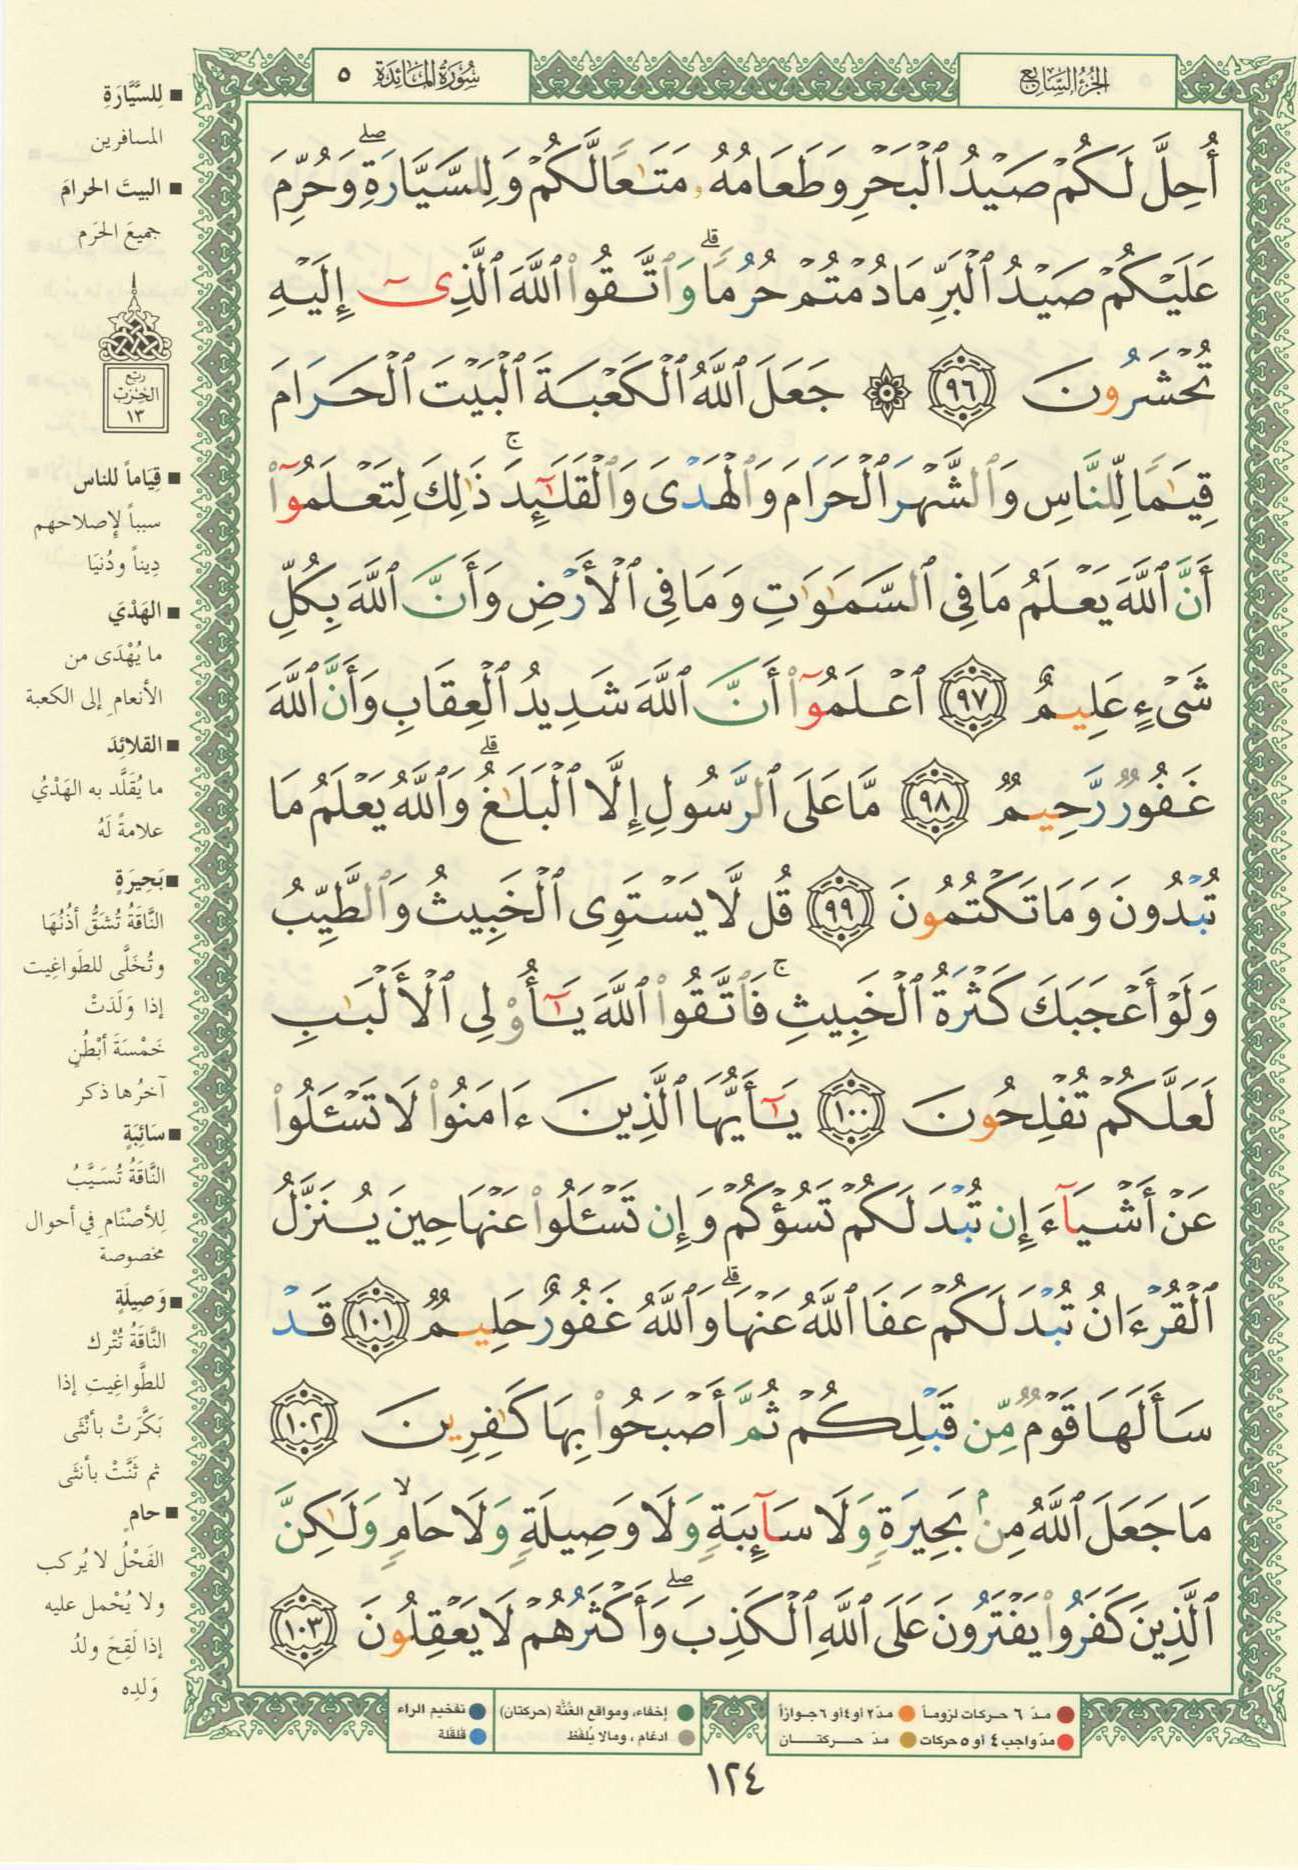 الجزء السابع
سورة المائدة ٥
أُحِلَّ لَكُمْ صَيْدُ ٱلْبَحْرِ وَطَعَامُهُۥ مَتَٰعًا لَّكُمْ وَلِلسَّيَّارَةِ ۖ وَحُرِّمَ
عَلَيْكُمْ صَيْدُ ٱلْبَرِّ مَا دُمْتُمْ حُرُمًا ۗ وَٱتَّقُوا۟ ٱللَّهَ ٱلَّذِىٓ إِلَيْهِ
تُحْشَرُونَ ٩٦ ۞ جَعَلَ ٱللَّهُ ٱلْكَعْبَةَ ٱلْبَيْتَ ٱلْحَرَامَ
قِيَٰمًا لِّلنَّاسِ وَٱلشَّهْرَ ٱلْحَرَامَ وَٱلْهَدْىَ وَٱلْقَلَٰٓئِدَ ۚ ذَٰلِكَ لِتَعْلَمُوٓا۟
أَنَّ ٱللَّهَ يَعْلَمُ مَا فِى ٱلسَّمَٰوَٰتِ وَمَا فِى ٱلْأَرْضِ وَأَنَّ ٱللَّهَ بِكُلِّ
شَىْءٍ عَلِيمٌ ٩٧ ٱعْلَمُوٓا۟ أَنَّ ٱللَّهَ شَدِيدُ ٱلْعِقَابِ وَأَنَّ ٱللَّهَ
غَفُورٌ رَّحِيمٌ ٩٨ مَّا عَلَى ٱلرَّسُولِ إِلَّا ٱلْبَلَٰغُ ۗ وَٱللَّهُ يَعْلَمُ مَا
تُبْدُونَ وَمَا تَكْتُمُونَ ٩٩ قُل لَّا يَسْتَوِى ٱلْخَبِيثُ وَٱلطَّيِّبُ
وَلَوْ أَعْجَبَكَ كَثْرَةُ ٱلْخَبِيثِ ۚ فَٱتَّقُوا۟ ٱللَّهَ يَٰٓأُو۟لِى ٱلْأَلْبَٰبِ
لَعَلَّكُمْ تُفْلِحُونَ ١٠٠ يَٰٓأَيُّهَا ٱلَّذِينَ ءَامَنُوا۟ لَا تَسْـَٔلُوا۟
عَنْ أَشْيَآءَ إِن تُبْدَ لَكُمْ تَسُؤْكُمْ وَإِن تَسْـَٔلُوا۟ عَنْهَا حِينَ يُنَزَّلُ
ٱلْقُرْءَانُ تُبْدَ لَكُمْ عَفَا ٱللَّهُ عَنْهَا ۗ وَٱللَّهُ غَفُورٌ حَلِيمٌ ١٠١ قَدْ
سَأَلَهَا قَوْمٌ مِّن قَبْلِكُمْ ثُمَّ أَصْبَحُوا۟ بِهَا كَٰفِرِينَ ١٠٢
مَا جَعَلَ ٱللَّهُ مِنۢ بَحِيرَةٍ وَلَا سَآئِبَةٍ وَلَا وَصِيلَةٍ وَلَا حَامٍ ۙ وَلَٰكِنَّ
ٱلَّذِينَ كَفَرُوا۟ يَفْتَرُونَ عَلَى ٱللَّهِ ٱلْكَذِبَ ۖ وَأَكْثَرُهُمْ لَا يَعْقِلُونَ ١٠٣
■ لِلسَّيَّارَةِ
المسافرين
■ البيتَ الحرامَ
جميعَ الحَرَم
ربع
الحزب
١٣
■ قِيَاماً للناس
سبباً لإصلاحهم
دِيناً ودُنيَا
■ الهَدْيَ
ما يُهْدَى من
الأنعامِ إلى الكعبة
■ القلائِدَ
ما يُقَلَّد به الهَدْيُ
علامةً لَهُ
■ بَحِيرَةٍ
النَّاقَةُ تُشَقُّ أذُنُهَا
وتُخَلَّى للطَواغِيت
إذا وَلَدَتْ
خَمْسَةَ أبْطُنٍ
آخرُها ذكر
■ سَائِبَةٍ
النَّاقَةُ تُسَيَّبُ
لِلأصْنَامِ في أحوال
مخصوصة
■ وَصِيلَةٍ
النَّاقَةُ تُتْرك
للطَّواغِيتِ إذا
بَكَّرَتْ بأنْثَى
ثم ثَنَّتْ بأنثَى
■ حامٍ
الفَحْلُ لا يُركب
ولا يُحْمل عليه
إذا لَقِحَ ولدُ
وَلدِه
مدّ ٦ حركات لزوماً
مدّ ٢ أو ٤ أو ٦ جوازاً
إخفاء، ومواقع الغُنَّة (حركتان)
تفخيم الراء
مدّ واجب ٤ أو ٥ حركات
مدّ حركتان
ادغام، ومالا يُلفظ
قلقلة
١٢٤